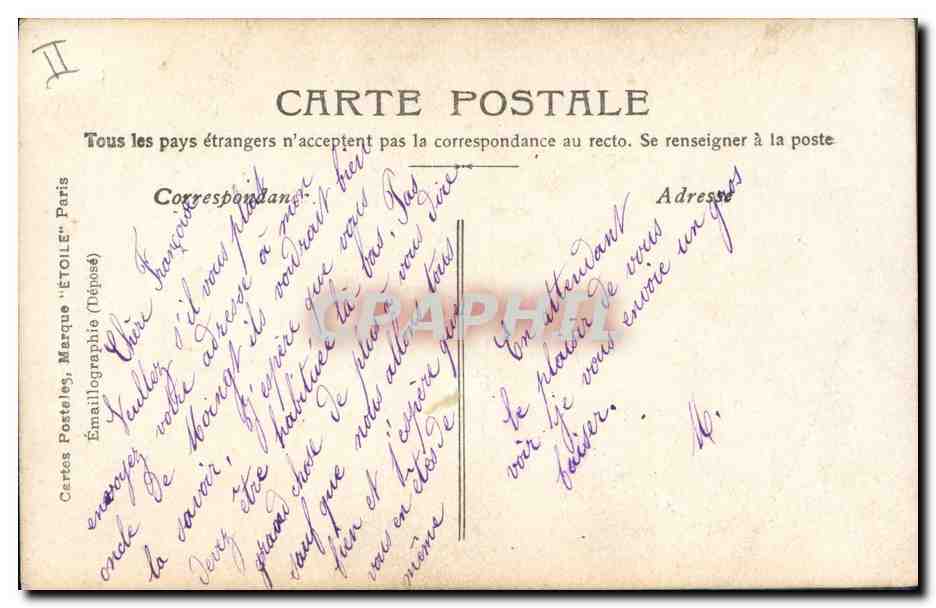 II
CARTE POSTALE
Tous les pays étrangers n'acceptent pas la correspondance au recto. Se renseigner à la poste
Correspondance
Adresse
Cartes Postales, Marque "ÉTOILE" Paris
Émaillographie (Déposé)
Chère Françoise
Veuillez s'il vous plait
envoyez votre adresse à mon
oncle de Moingt ils voudrait bien
la savoir, j'espère que vous
devez être habituée là bas, Pas
grand chose de placé à vous dire
sauf que nous allons tous
bien et j'espère que
vous en êtes de
même
En attendant
le plaisir de vous
voir je vous envoie un gros
baiser.
M.
CPAPHIL